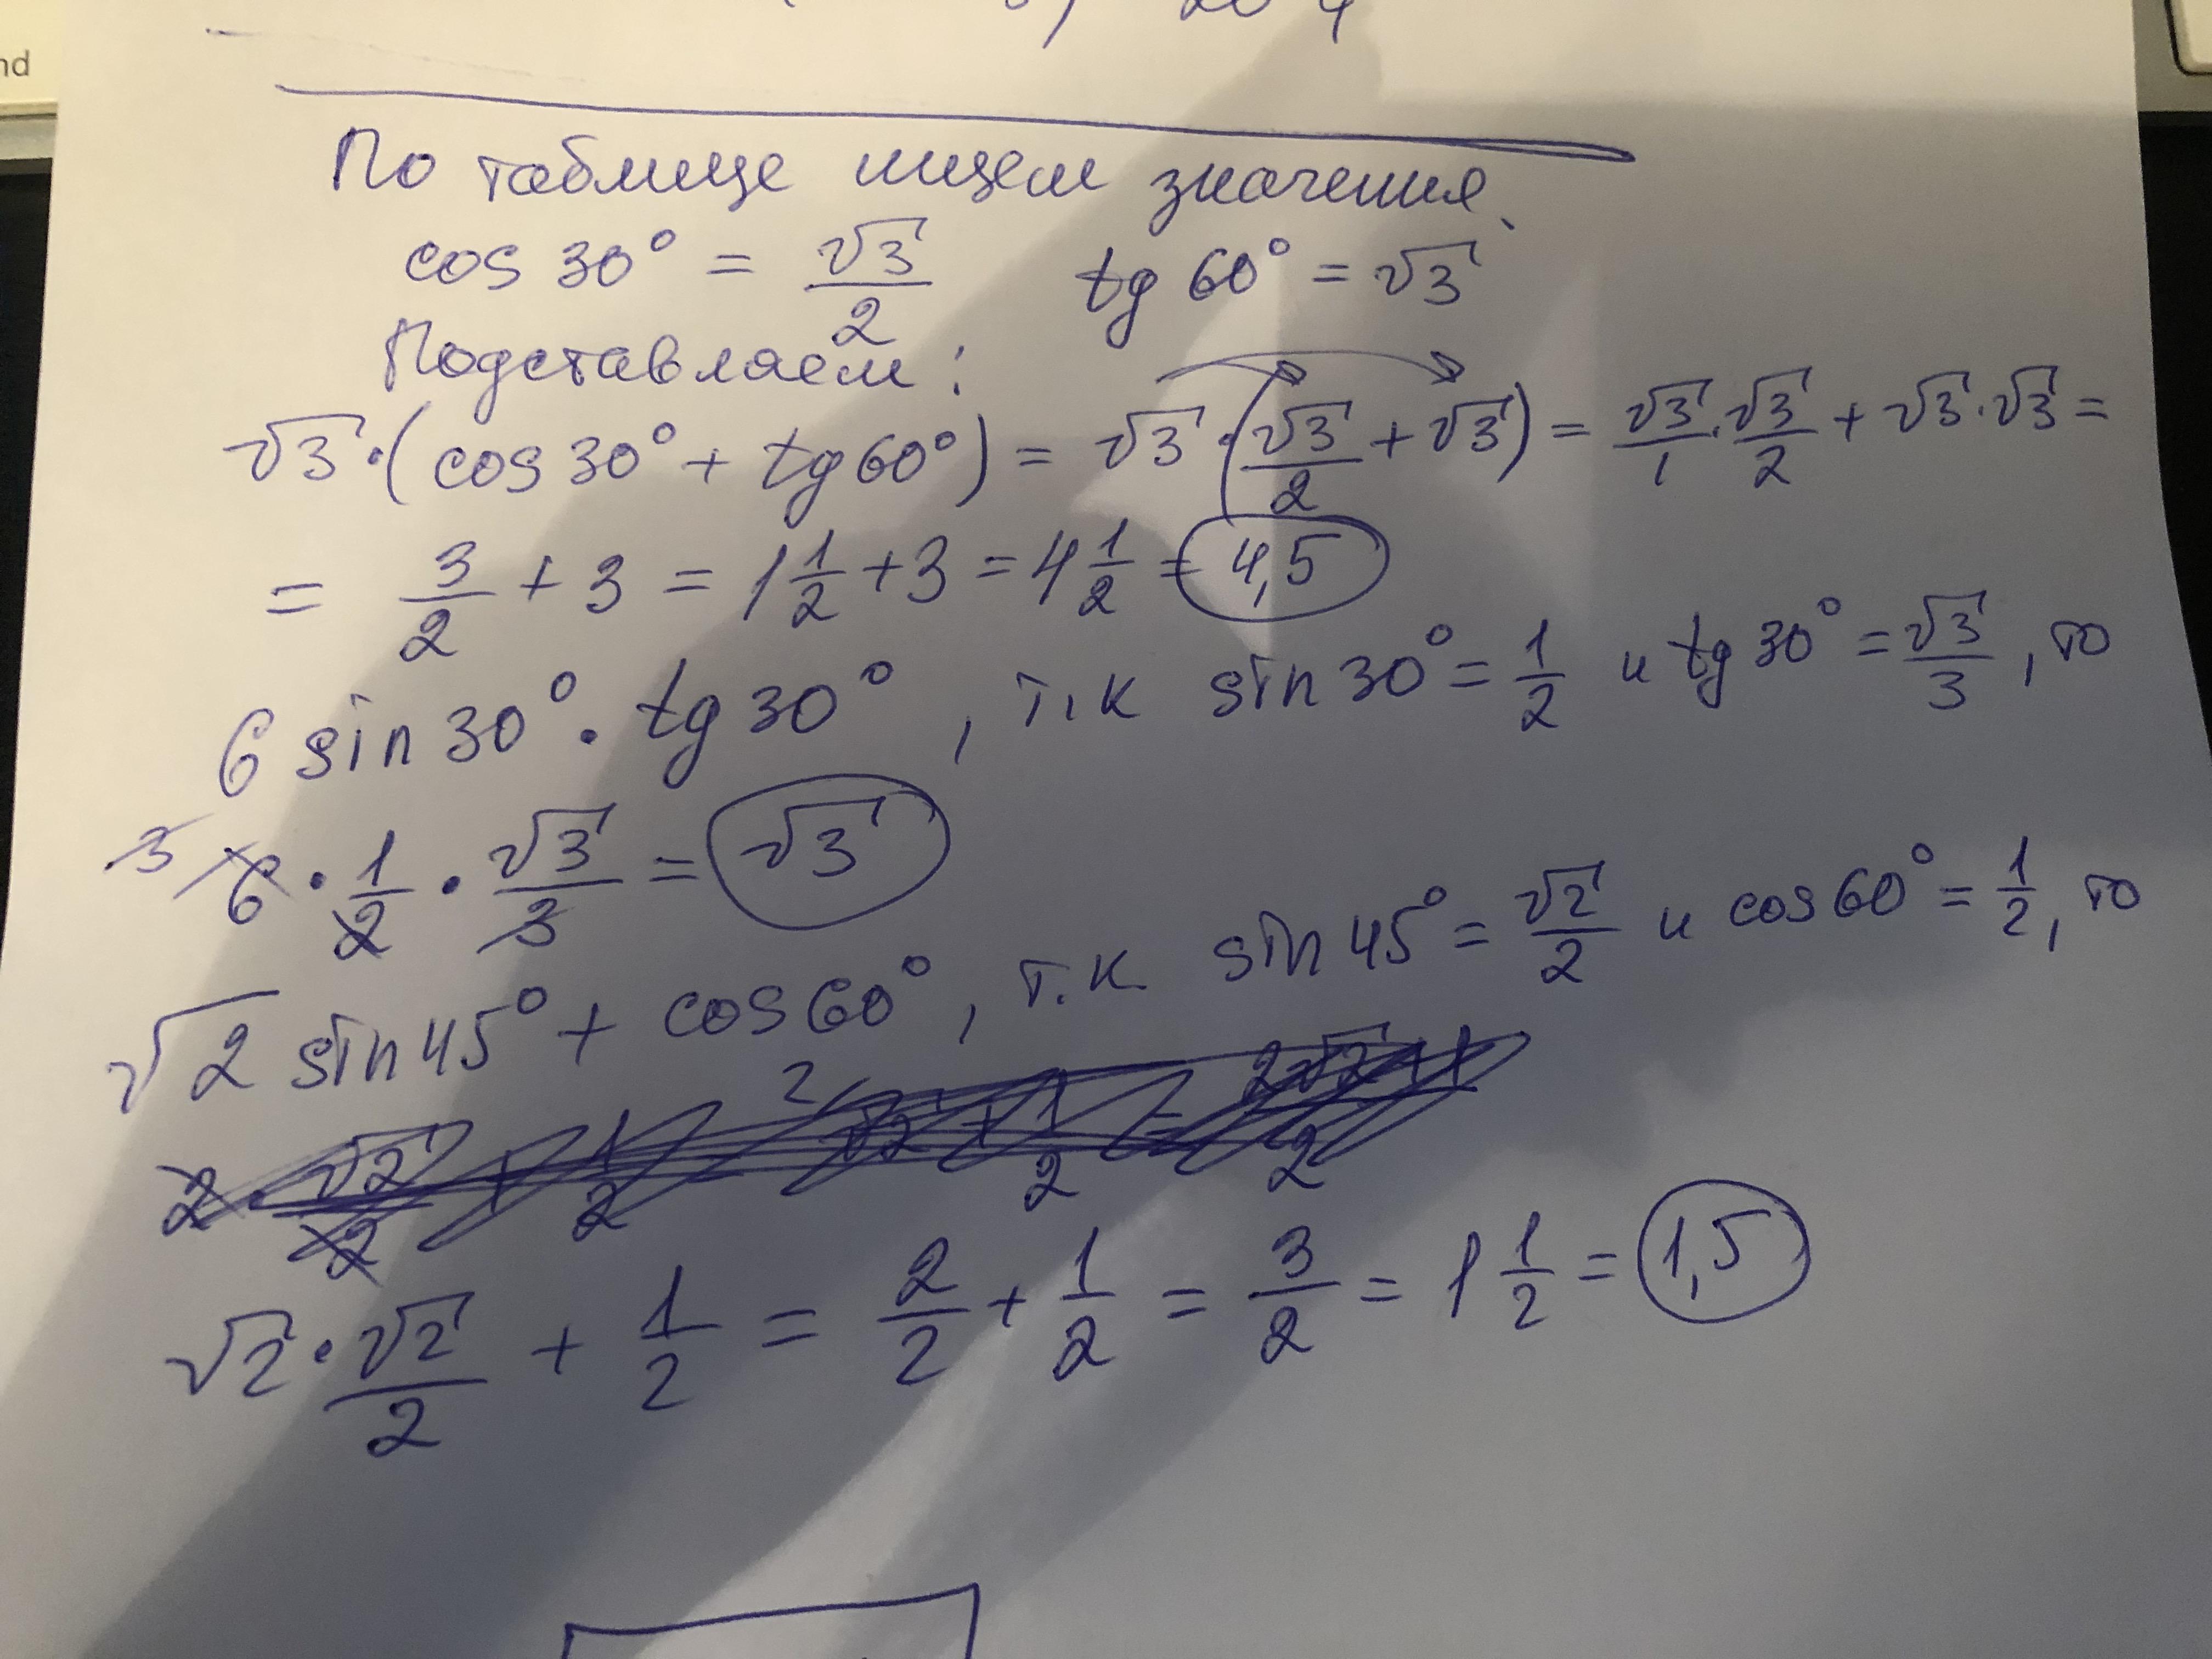 nd
По таблице ищем значения.
cos 30° = √3/2    tg 60° = √3
Подставляем:
√3·(cos 30° + tg 60°) = √3·(√3/2 + √3) = √3/1·√3/2 + √3·√3 =
= 3/2 + 3 = 1 1/2 + 3 = 4 1/2 = 4,5
6 sin 30° · tg 30°, т.к sin 30° = 1/2 и tg 30° = √3/3, то
3 6 · 1/2 · √3/3 = √3
√2 sin 45° + cos 60°, т.к. sin 45° = √2/2 и cos 60° = 1/2, то
√2 · √2/2 + 1/2 = 2/2 + 1/2 = 3/2 = 1 1/2 = 1,5